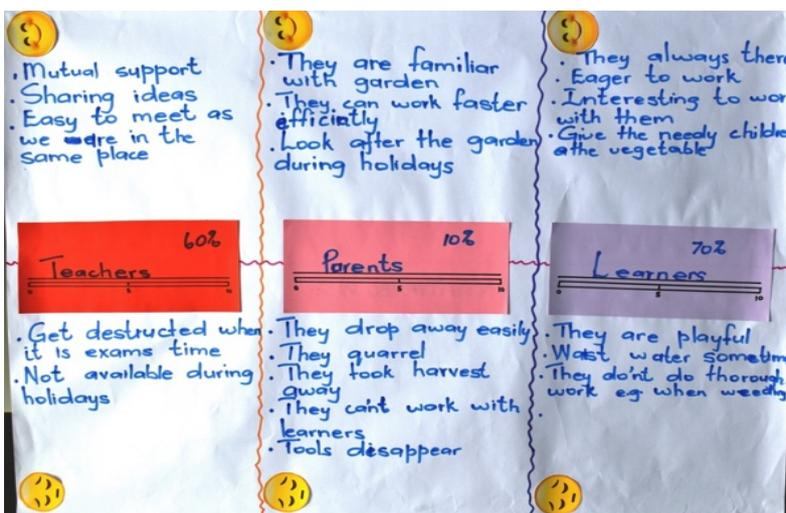 . Mutual support
. Sharing ideas
. Easy to meet as
we are in the
same place
60%
Teachers
0 5 10
. Get destructed when
it is exams time
. Not available during
holidays
. They are familiar
with garden
. They can work faster
efficintly
. Look after the garden
during holidays
10%
Parents
0 5 10
. They drop away easily
. They quarrel
. They took harvest
away
. They can't work with
learners
. Tools disappear
. They always there
. Eager to work
. Interesting to wor
with them
. Give the needy childre
the vegetable
70%
Learners
0 5 10
. They are playful
. Wast water sometim
. They do'nt do thorough
work eg when weeding
.